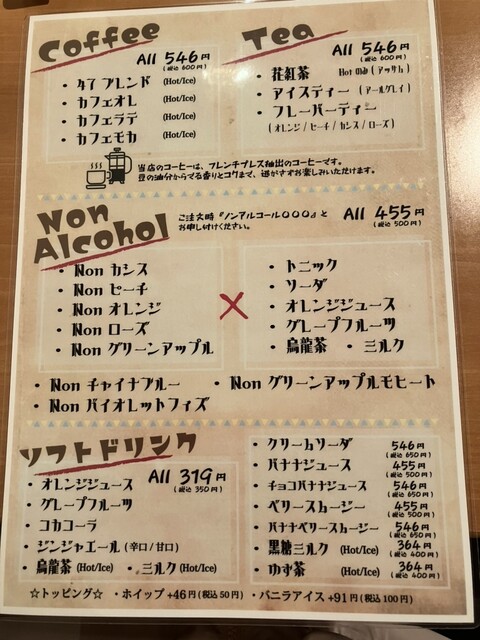 Coffee
All 546円
(税込 600円)
・47 ブレンド (Hot/Ice)
・カフェオレ (Hot/Ice)
・カフェラテ (Hot/Ice)
・カフェモカ (Hot/Ice)
Tea
All 546円
(税込 600円)
・花紅茶 Hot のみ (アッサム)
・アイスティー (アールグレイ)
・フレーバーティー
(オレンジ/ピーチ/カシス/ローズ)
当店のコーヒーは、フレンチプレス抽出のコーヒーです。
豆の油分からでる香りとコクまで、逃がさずお楽しみいただけます。
Non Alcohol
ご注文時『ノンアルコール〇〇〇』と
お申し付けください。
All 455円
(税込 500円)
・Non カシス
・Non ピーチ
・Non オレンジ
・Non ローズ
・Non グリーンアップル
×
・トニック
・ソーダ
・オレンジジュース
・グレープフルーツ
・烏龍茶 ・ミルク
・Non チャイナブルー ・Non グリーンアップルモヒート
・Non バイオレットフィズ
ソフトドリンク
All 319円
(税込 350円)
・オレンジジュース
・グレープフルーツ
・コカコーラ
・ジンジャエール (辛口/甘口)
・烏龍茶 (Hot/Ice) ・ミルク (Hot/Ice)
・クリームソーダ 546円
(税込 650円)
・バナナジュース 455円
(税込 500円)
・チョコバナナジュース 546円
(税込 650円)
・ベリースムージー 455円
(税込 500円)
・バナナベリースムージー 546円
(税込 650円)
・黒糖ミルク (Hot/Ice) 364円
(税込 400円)
・ゆず茶 (Hot/Ice) 364円
(税込 400円)
☆トッピング☆ ・ホイップ +46円 (税込 50円) ・バニラアイス +91円 (税込 100円)